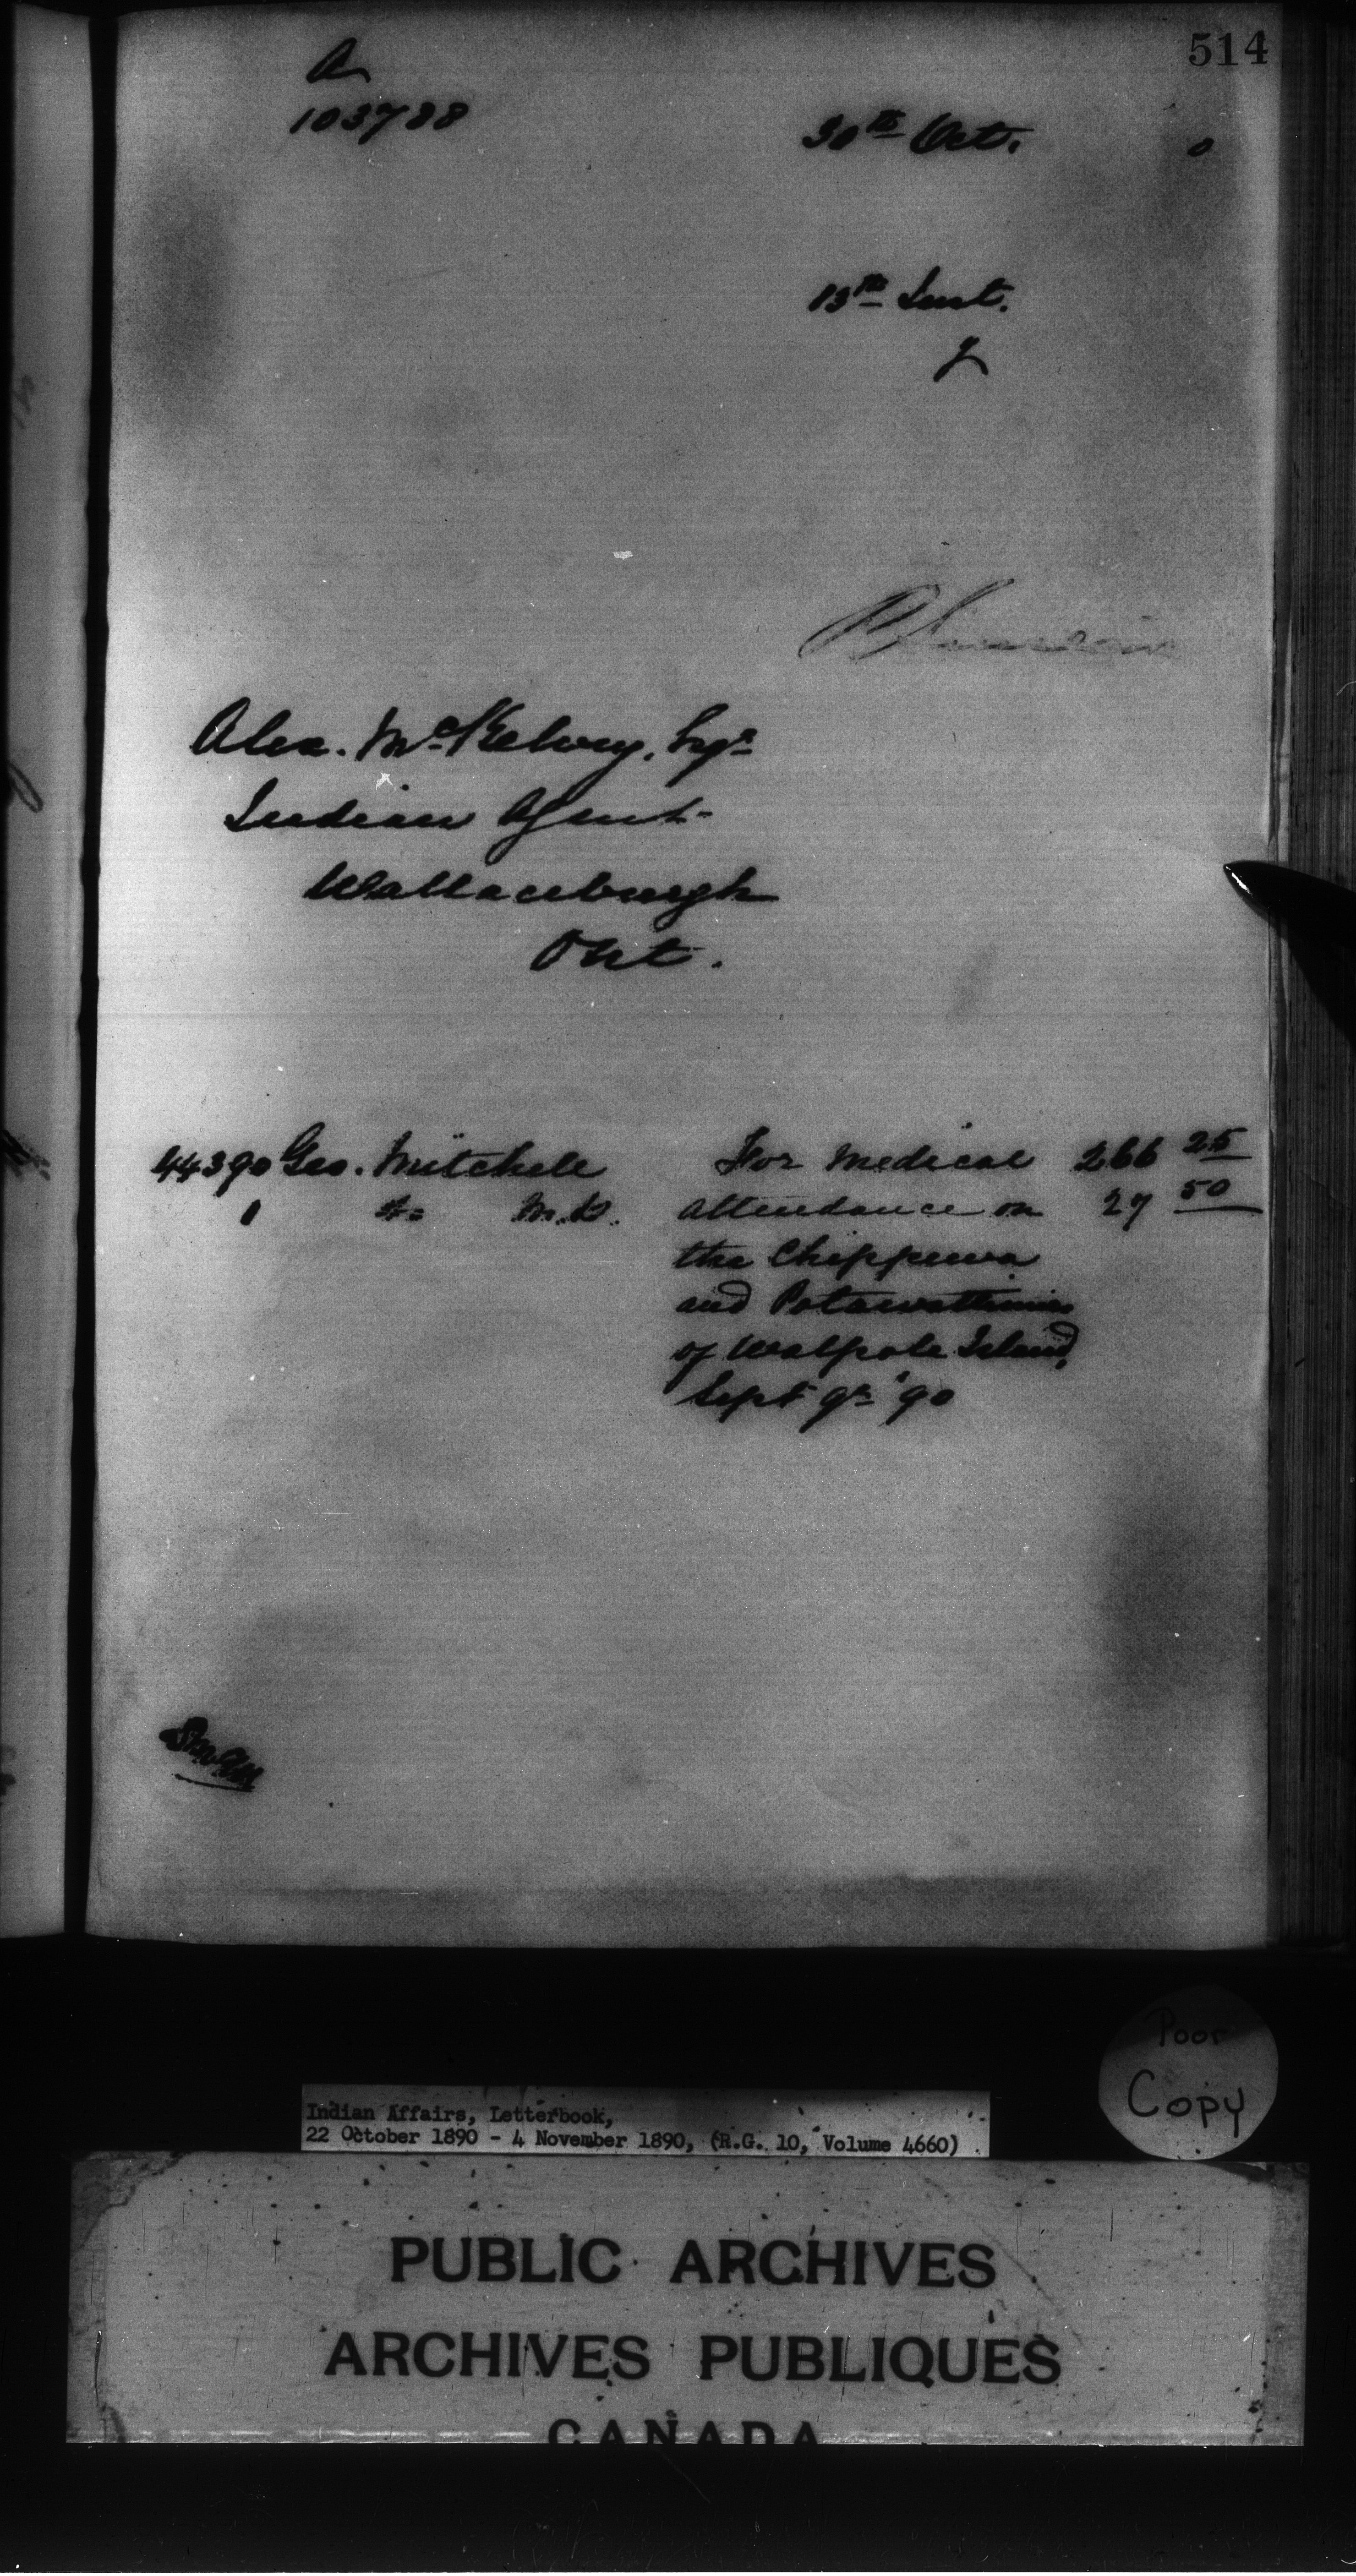 514
A
103788
30th Oct. 0
13th Inst.
Alex. McKelvey, Esqr
Indian Agent
Wallaceburgh
Ont.
44390 Geo. Mitchell For Medical 266 25
1 do M.D. attendance on 27 50
the Chippewa
and Potawattimies
of Walpole Island,
Sept qr '90
Poor
Copy
Indian Affairs, Letterbook,
22 October 1890 - 4 November 1890, (R.G. 10, Volume 4660)
PUBLIC ARCHIVES
ARCHIVES PUBLIQUES
CANADA